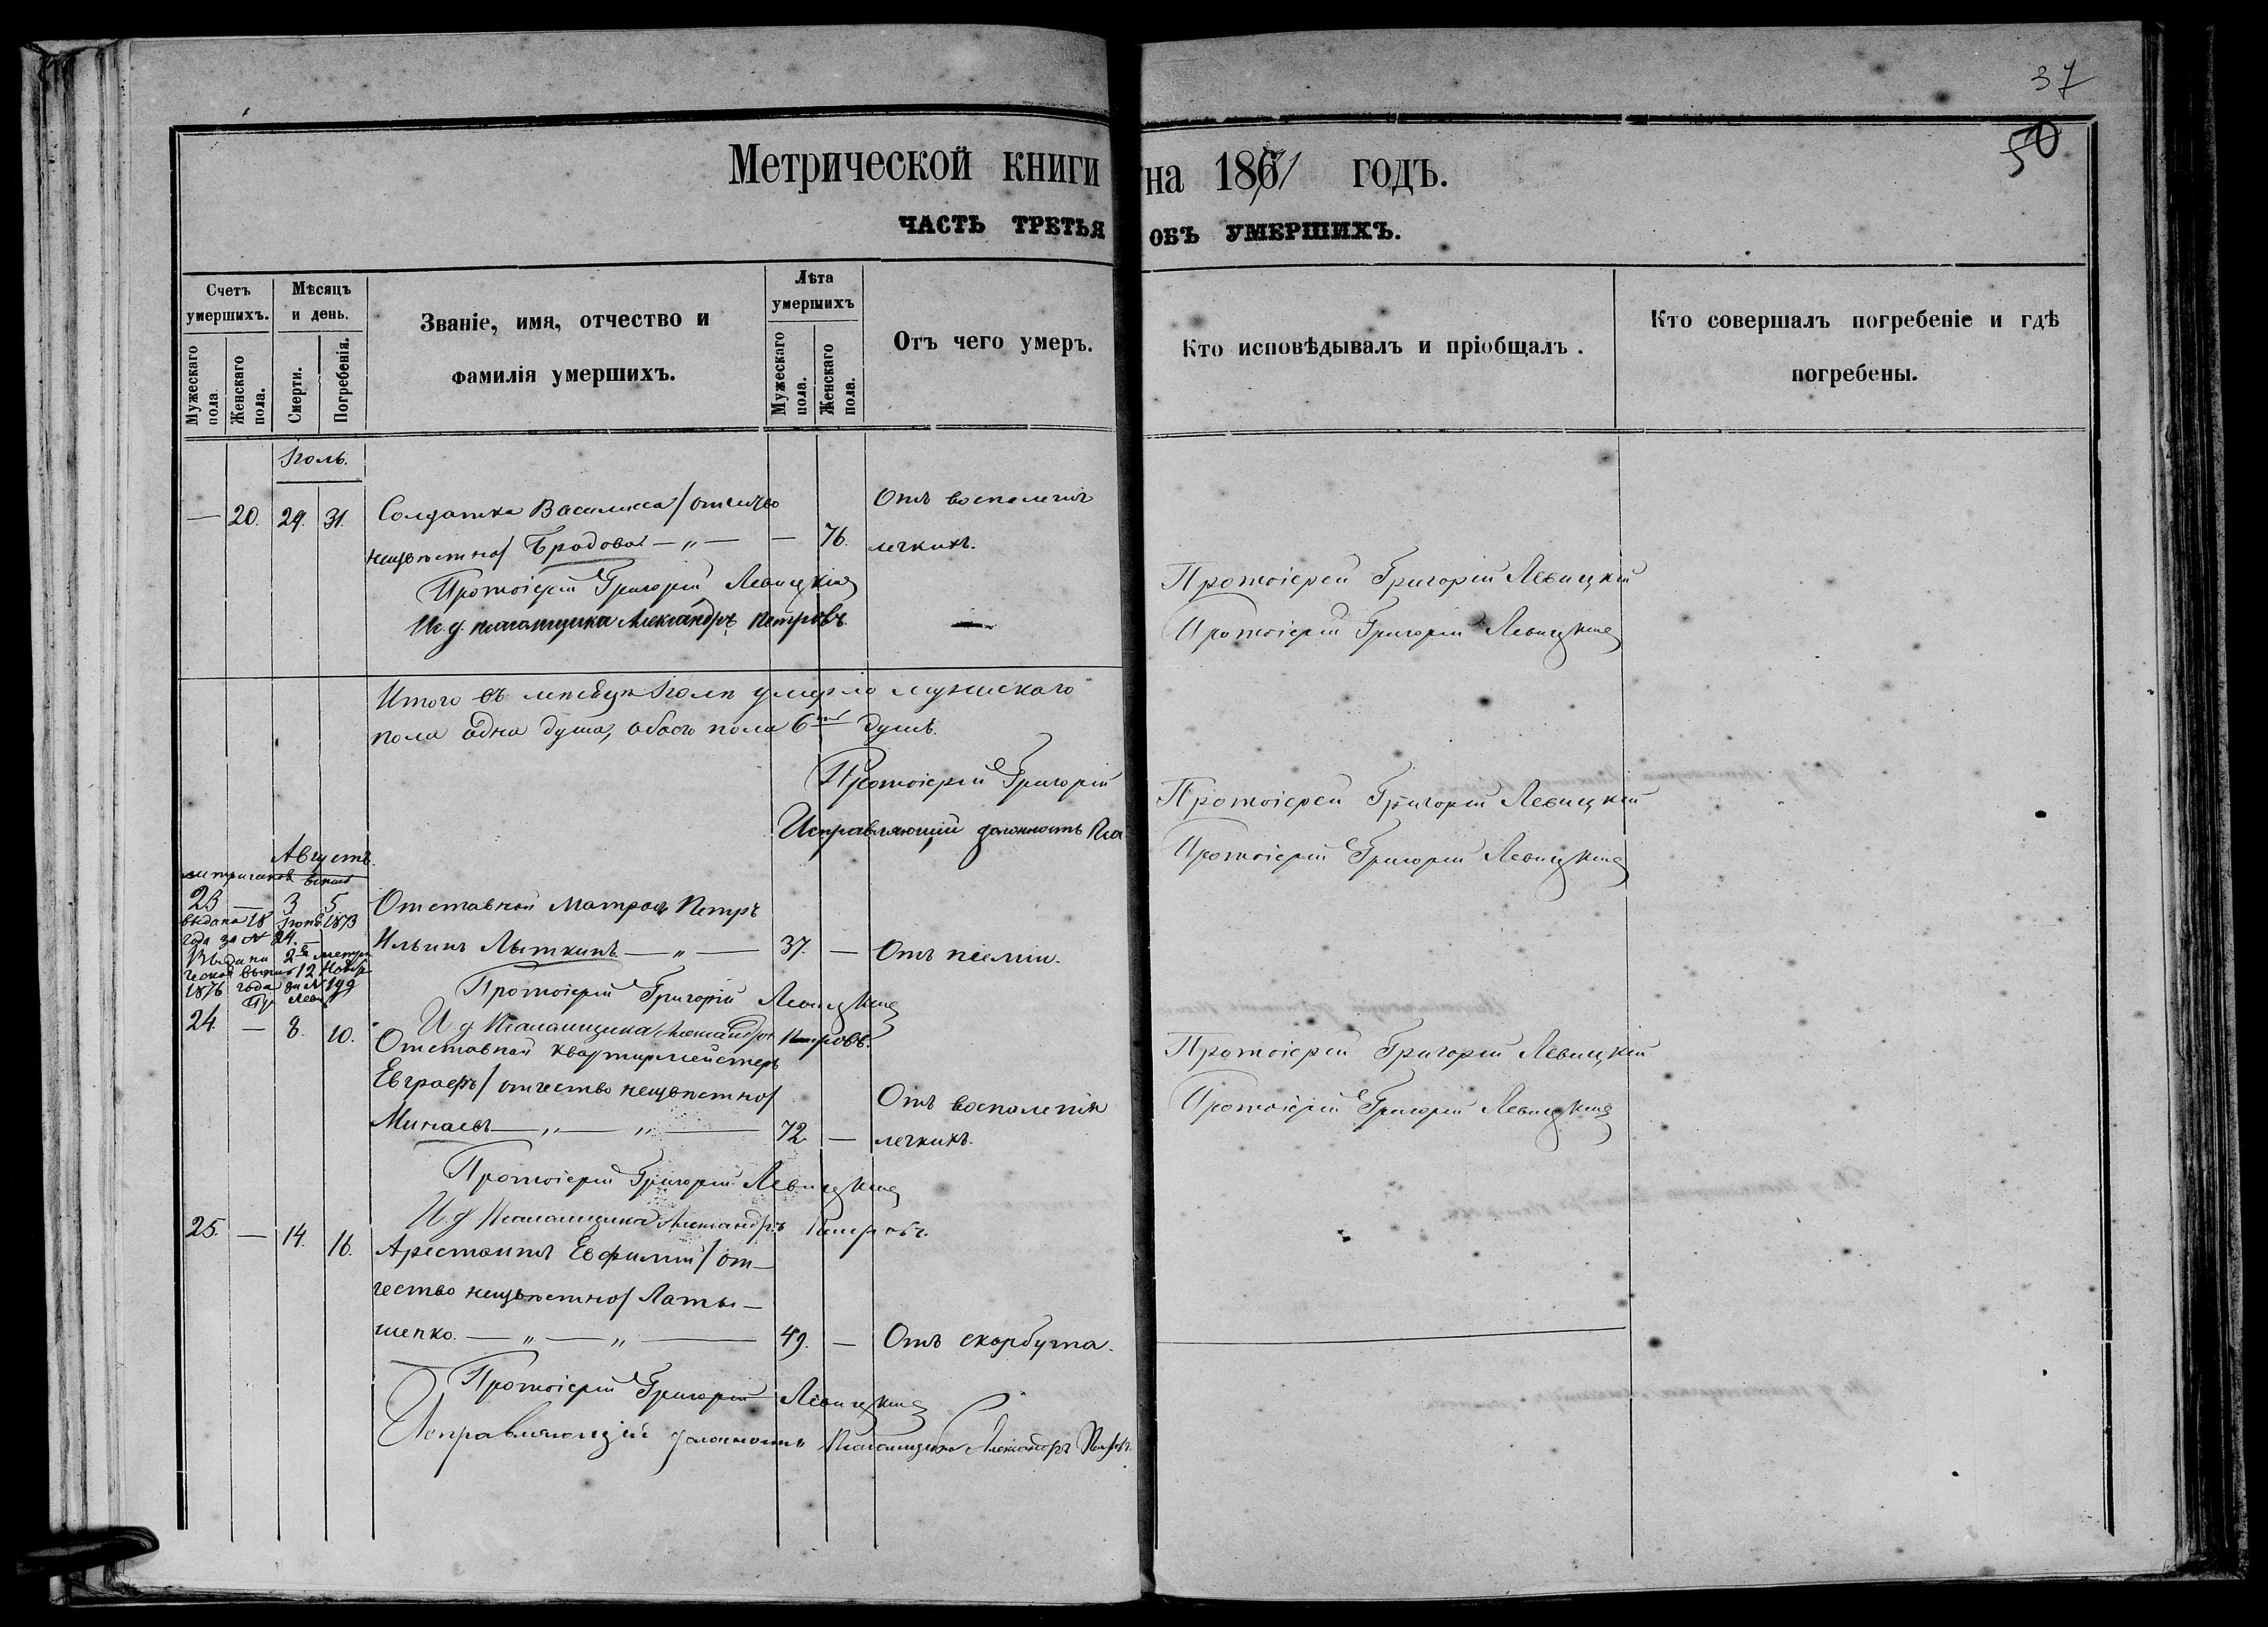 37
50
Метрической книги на 1871 годъ.
ЧАСТЬ ТРЕТЬЯ ОБЪ УМЕРШИХЪ.
Счетъ умершихъ.
Мужескаго пола.
Женскаго пола.
Мѣсяцъ и день.
Смерти.
Погребенія.
Званіе, имя, отчество и
фамилія умершихъ.
Лѣта умершихъ
Мужескаго пола.
Женскаго пола.
Отъ чего умеръ.
Кто исповѣдывалъ и пріобщалъ.
Кто совершалъ погребеніе и гдѣ
погребены.
Іюль.
— 20. 29. 31. Солдатка Василисса / отчество
неизвѣстно / Бродовая — „ — — 76.
Отъ воспаленія
легкихъ.
Протоіерей Григорій Левицкій
И. д. псаломщика Александръ Петровъ.
Протоіерей Григорій Левицкій
Протоіерей Григорій Левицкій
Итого въ мѣсяцѣ Іюлѣ умерло мужескаго
пола одна душа, обоего пола 6 душъ.
Протоіерей Григорій
Исправляющій должность Пса
Протоіерей Григорій Левицкій
Протоіерей Григорій Левицкій
Августъ.
23 — 3 5 Отставной Матросъ Петръ
Ильинъ Лыткинъ — „ — 37. —
выдана 18 1873
года за № 24. —
Выдана 2я метри
ческая 12 Ноябр
1876 года за № 199
Протоіерей Григорій Левицкій
И. д. Псаломщика Александръ Петровъ.
24. — 8. 10. Отставной квартирмейстеръ
Евграфъ / отчество неизвѣстно /
Минаевъ — „ — „ — 72. —
Отъ воспаленія
легкихъ.
Протоіерей Григорій Левицкій
Протоіерей Григорій Левицкій
Протоіерей Григорій Левицкій
И. д. Псаломщика Александръ Петровъ.
25. — 14. 16. Арестантъ Евфимій / от-
чество неизвѣстно / Латы-
шенко. — „ — „ — 49. — Отъ скорбута.
Протоіерей Григорій Левицкій
Исправляющій должность Псаломщика Александръ Петровъ.